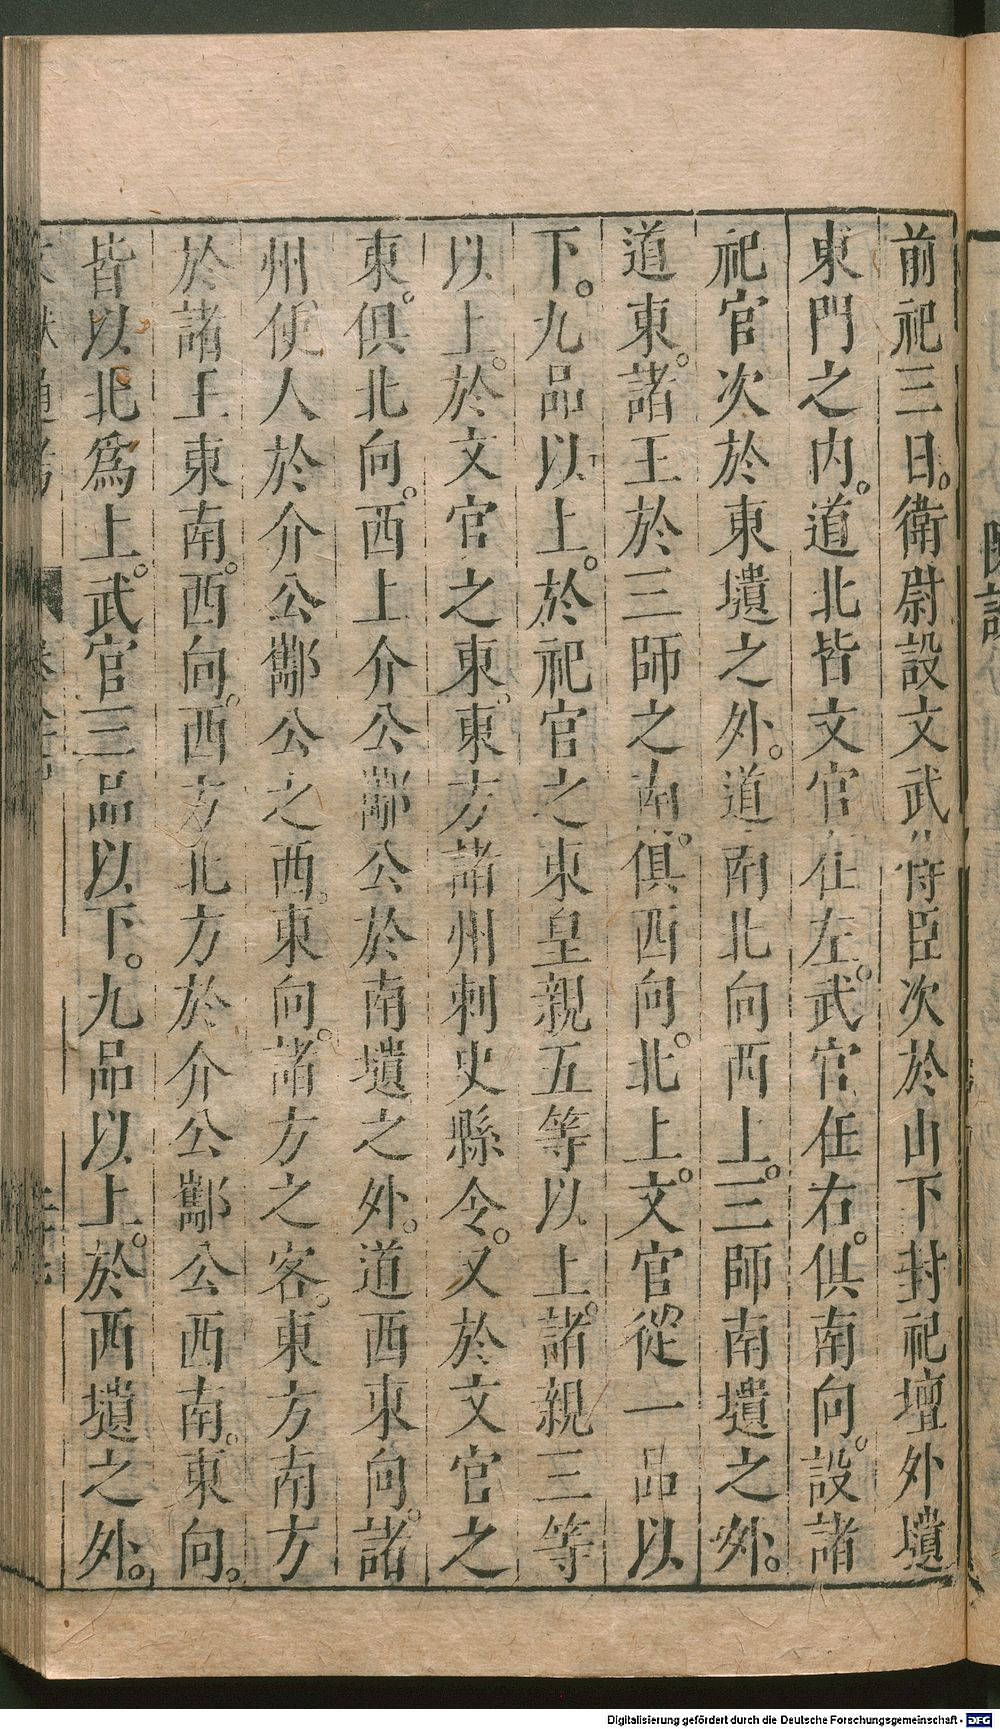 前祀三日。衛尉設文武侍臣次於山下封祀壇外壝
東門之内。道北皆文官在左。武官在右。俱南向。設諸
祀官次於東壝之外。道南北向西上。三師南壝之外。
道東。諸王於三師之南。俱西向。北上。文官從一品以
下。九品以上。於祀官之東皇親五等以上。諸親三等
以上。於文官之東。東方諸州刺史縣令。又於文官之
東。俱北向。西上介公酅公於南壝之外。道西東向。諸
州使人於介公酅公之西。東向。諸方之客。東方南方
於諸王東南。西向。西方北方於介公酅公西南。東向。
皆以北爲上。武官三品以下。九品以上。於西壝之外。
Digitalisierung gefördert durch die Deutsche Forschungsgemeinschaft - DFG